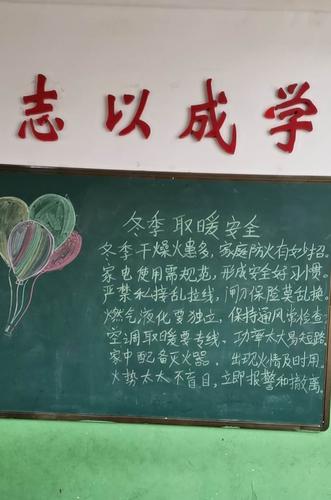 志以成学
冬季取暖安全
冬季干燥火患多,家庭防火有妙招。
家电使用需规范,形成安全好习惯。
严禁私接乱拉线,闸刀保险莫乱换。
燃气液化要独立,保持通风常检查。
空调取暖要专线,功率太大易短路。
家中配备灭火器,出现火情及时用。
火势太大不盲目,立即报警和撤离。